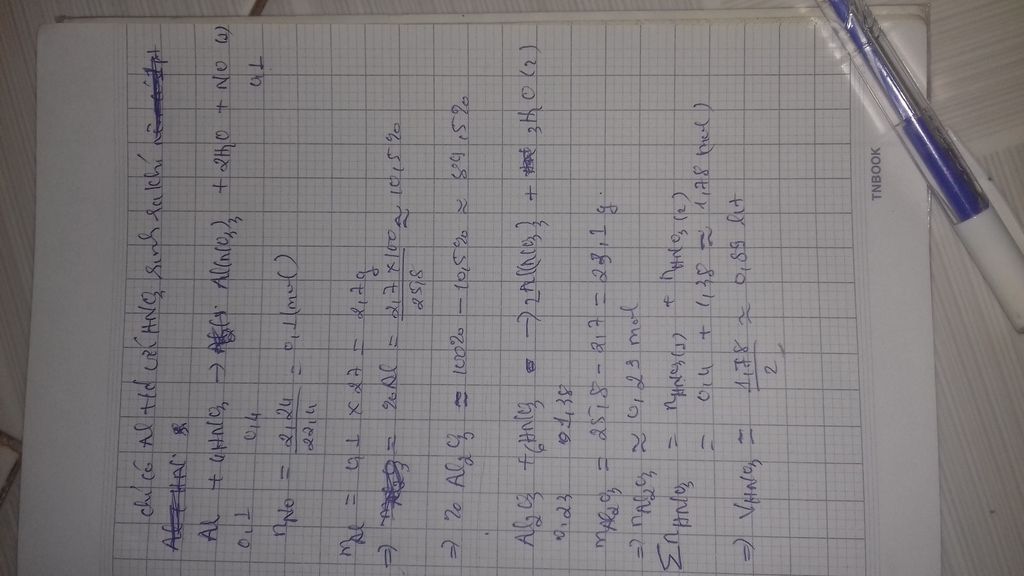 chỉ có Al td với HNO3 sinh ra khí
Al + 4HNO3 → Al(NO3)3 + 2H2O + NO (1)
0,1 0,4 0,1
nNO = 2,24 / 22,4 = 0,1 (mol)
mAl = 0,1 × 27 = 2,7g
⇒ %Al = 2,7 × 100 / 25,8 ≈ 10,5%
⇒ % Al2O3 = 100% - 10,5% ≈ 89,5%
Al2O3 + 6HNO3 → 2Al(NO3)3 + 3H2O (2)
0,23 1,38
mAl2O3 = 25,8 - 2,7 = 23,1 g.
⇒ nAl2O3 ≈ 0,23 mol
∑nHNO3 = nHNO3(1) + nHNO3(2)
= 0,4 + 1,38 ≈ 1,78 (mol)
⇒ VHNO3 = 1,78 / 2 ≈ 0,89 lit
TNBOOK